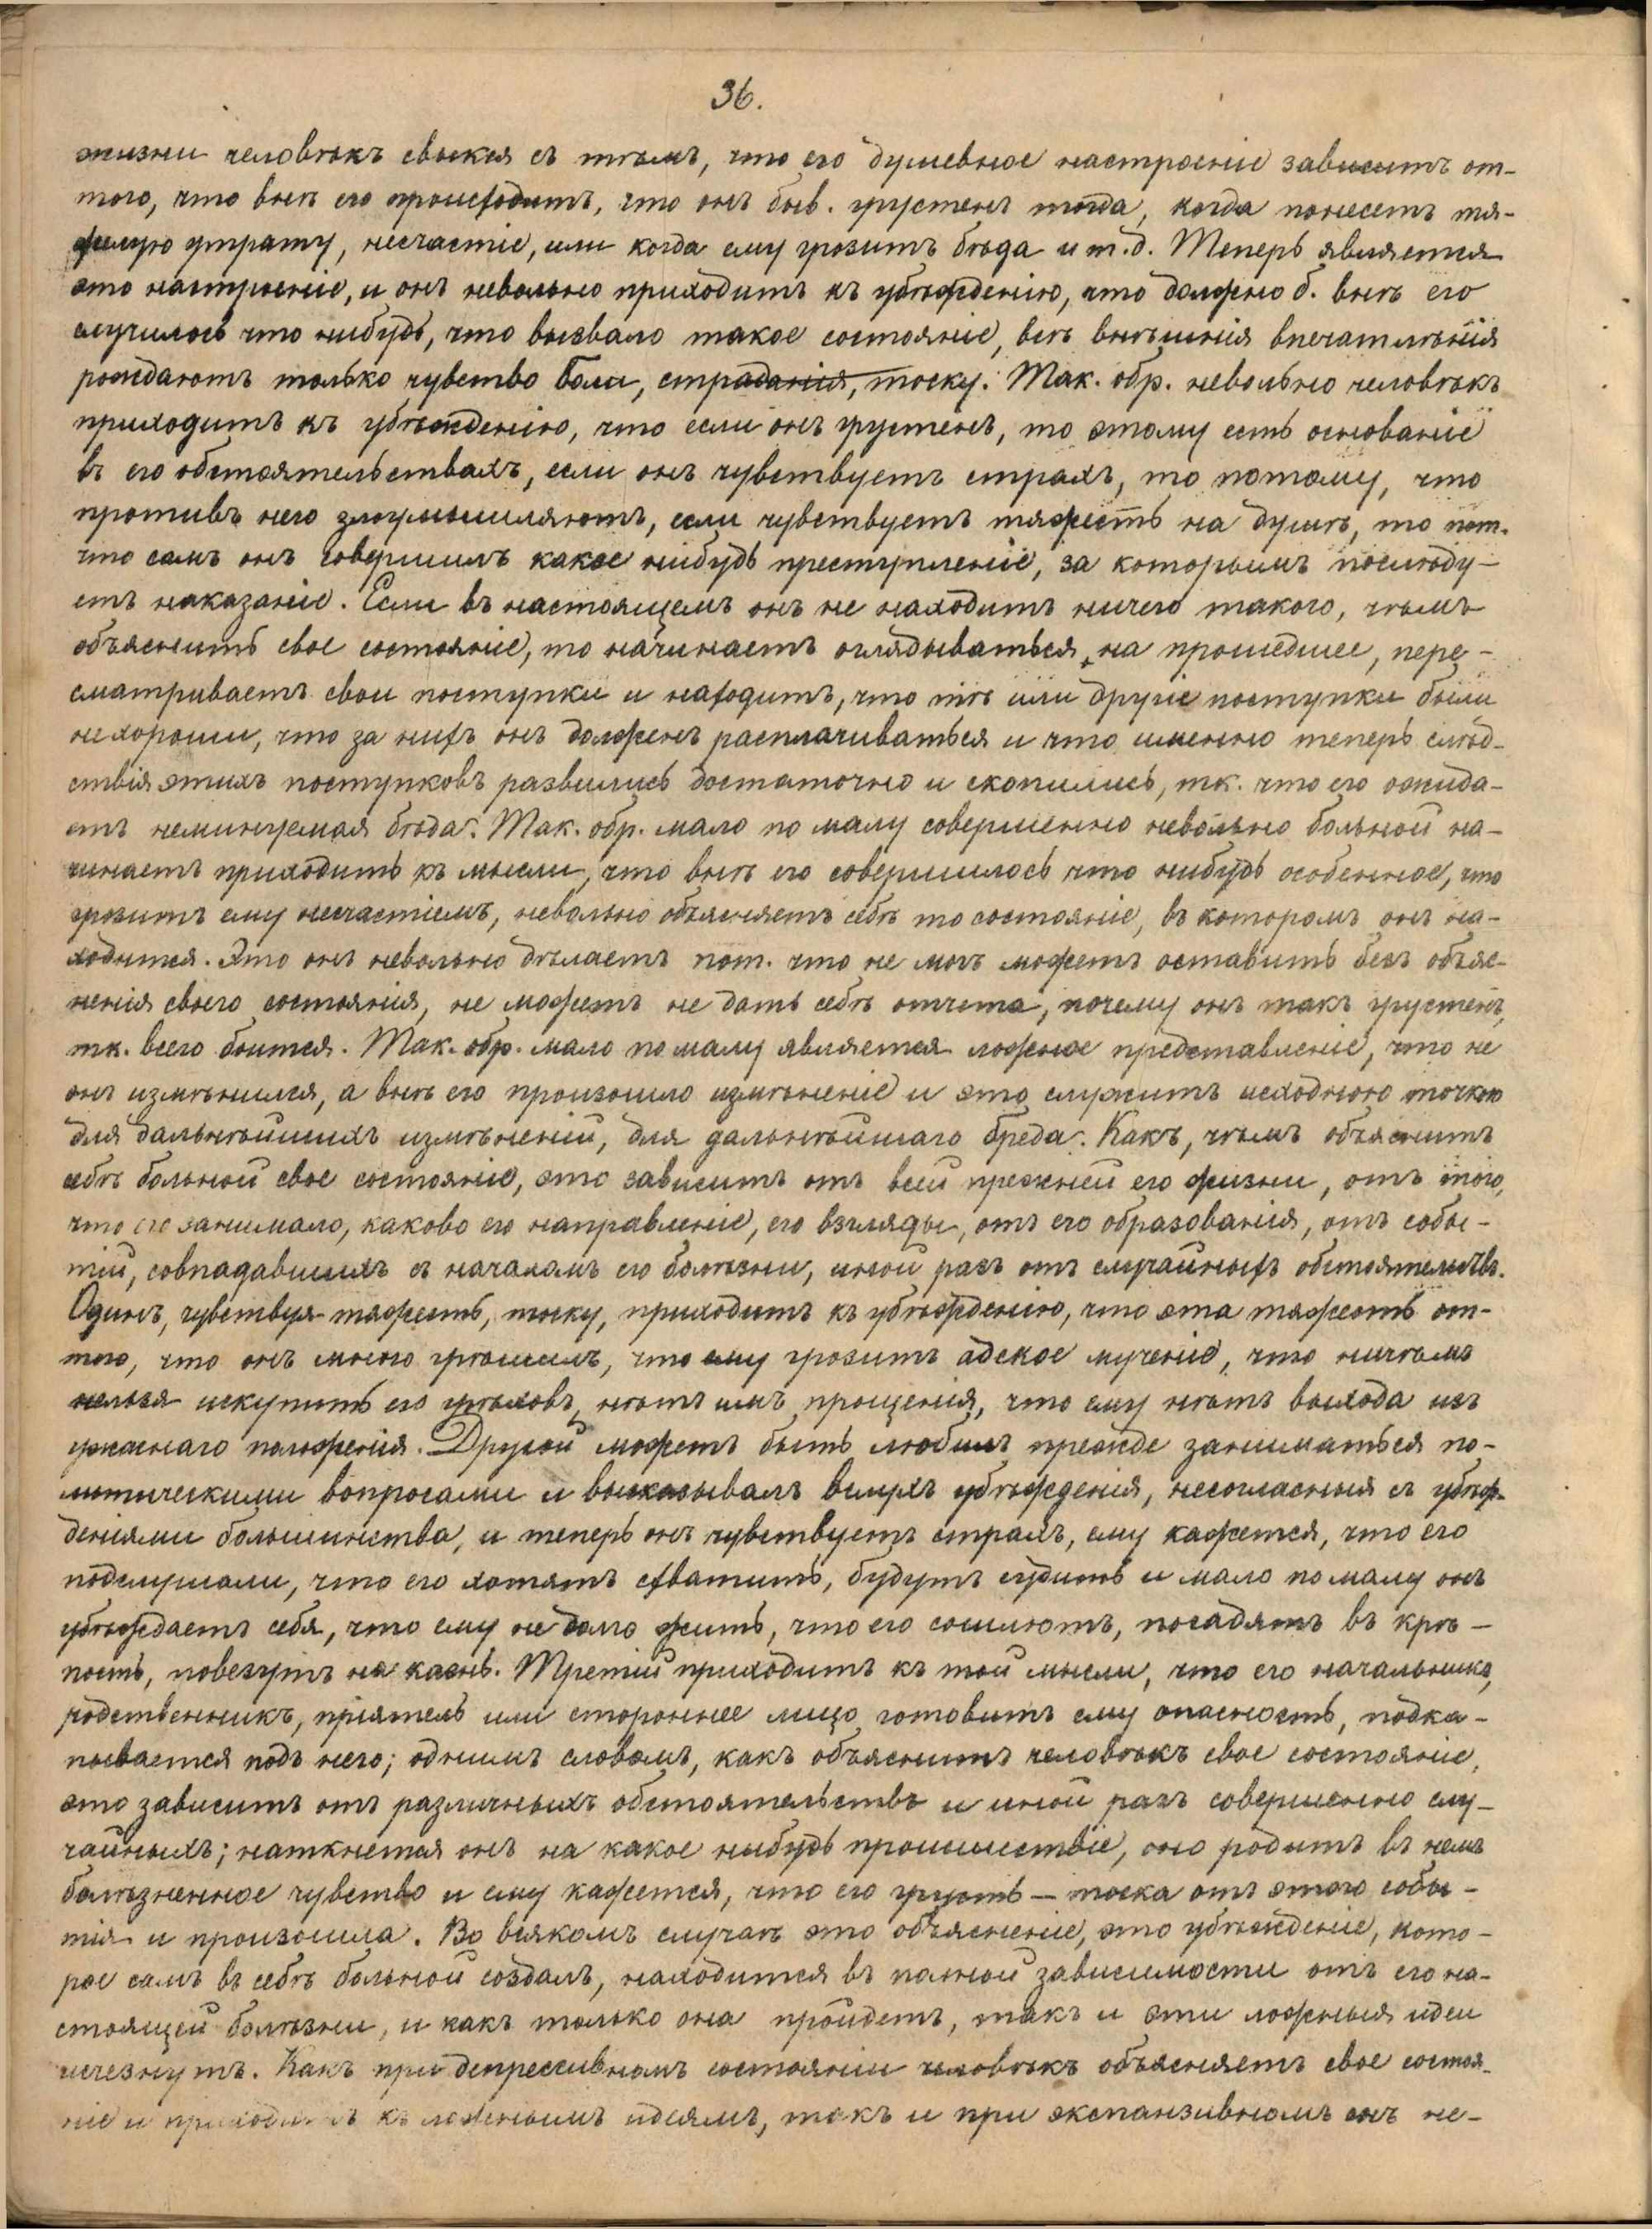 36.
жизни человѣкъ свыкся съ тѣмъ, что его душевное настроеніе зависитъ от-
того, что внѣ его происходитъ, что онъ быв. грустенъ тогда, когда понесетъ тя-
желую утрату, несчастіе, или когда ему грозитъ бѣда и т.д. Теперь является
это настроеніе, и онъ невольно приходитъ къ убѣжденію, что должно б. внѣ его
случилось что нибудь, что вызвало такое состояніе, всѣ внѣшнія впечатлѣнія
рождаютъ только чувство боли, страданія, тоску. Так. обр. невольно человѣкъ
приходитъ къ убѣжденію, что если онъ грустенъ, то этому есть основаніе
въ его обстоятельствахъ, если онъ чувствуетъ страхъ, то потому, что
противъ него злоумышляютъ, если чувствуетъ тяжесть на душѣ, то пот.
что самъ онъ совершилъ какое нибудь преступленіе, за которымъ послѣду-
етъ наказаніе. Если въ настоящемъ онъ не находитъ ничего такого, чѣмъ
объяснить свое состояніе, то начинаетъ оглядываться на прошедшее, пере-
сматриваетъ свои поступки и находитъ, что тѣ или другіе поступки были
нехороши, что за нихъ онъ долженъ расплачиваться и что именно теперь слѣд-
ствія этихъ поступковъ развились достаточно и скопились, тк. что его ожида-
етъ неминуемая бѣда. Так. обр. мало по малу совершенно невольно больной на-
чинаетъ приходить къ мысли, что внѣ его совершилось что нибудь особенное, что
грозитъ ему несчастіемъ, невольно объясняетъ себѣ то состояніе, въ которомъ онъ на-
ходится. Это онъ невольно дѣлаетъ пот. что не могъ можетъ оставить безъ объяс-
ненія своего состоянія, не можетъ не дать себѣ отчета, почему онъ такъ грустенъ,
тк. всего боится. Так. обр. мало по малу является ложное представленіе, что не
онъ измѣнился, а внѣ его произошло измѣненіе и это служитъ исходною точкою
для дальнѣйшихъ измѣненій, для дальнѣйшаго бреда. Какъ, чѣмъ объяснитъ
себѣ больной свое состояніе, это зависитъ отъ всей прежней его жизни, отъ того,
что его занимало, каково его направленіе, его взгляды, отъ его образованія, отъ собы-
тій, совпадавшихъ съ началомъ его болѣзни, иной разъ отъ случайныхъ обстоятельствъ.
Одинъ, чувствуя тяжесть, тоску, приходитъ къ убѣжденію, что эта тяжесть от-
того, что онъ много грѣшилъ, что ему грозитъ адское мученіе, что ничѣмъ
нельзя искупить его грѣховъ, нѣтъ имъ прощенія, что ему нѣтъ выхода изъ
ужаснаго положенія. Другой можетъ быть любилъ прежде заниматься по-
литическими вопросами и высказывалъ вслухъ убѣжденія, несогласныя съ убѣж-
деніями большинства, и теперь онъ чувствуетъ страхъ, ему кажется, что его
подслушали, что его хотятъ схватить, будутъ судить и мало по малу онъ
убѣждаетъ себя, что ему не долго жить, что его сошлютъ, посадятъ въ крѣ-
пость, повезутъ на казнь. Третій приходитъ къ той мысли, что его начальникъ,
родственникъ, пріятель или стороннее лицо готовитъ ему опасность, подка-
пывается подъ него; однимъ словомъ, какъ объяснитъ человѣкъ свое состояніе,
это зависитъ отъ различныхъ обстоятельствъ и иной разъ совершенно слу-
чайныхъ; наткнется онъ на какое нибудь происшествіе, оно родитъ въ немъ
болѣзненное чувство и ему кажется, что его грусть — тоска отъ этого собы-
тія и произошла. Во всякомъ случаѣ это объясненіе, это убѣжденіе, кото-
рое самъ въ себѣ больной создалъ, находится въ полной зависимости отъ его на-
стоящей болѣзни, и какъ только она пройдетъ, такъ и эти ложныя идеи
исчезнутъ. Какъ при депрессивномъ состояніи человѣкъ объясняетъ свое состоя-
ніе и приходитъ къ ложнымъ идеямъ, такъ и при экспанзивномъ онъ не-